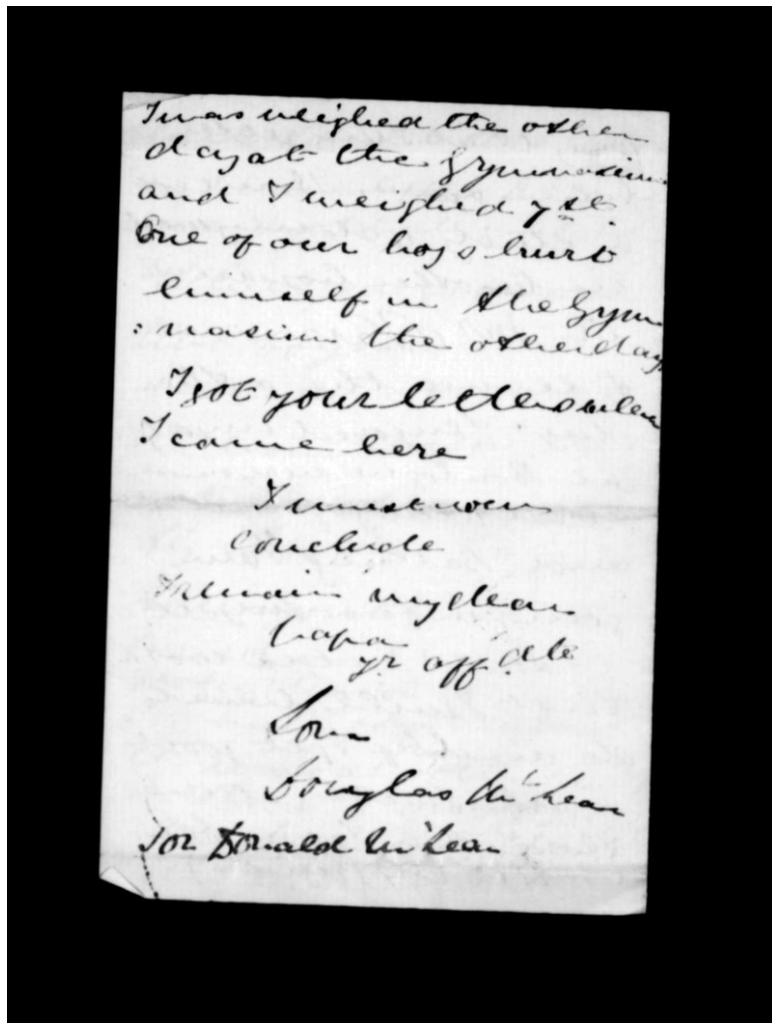 I was weighed the other
day at the Gymnasium
and I weighed 7 st.
One of our boys hurt
himself in the Gym
: nasium the other day
I got your letters when
I came here
I must now
conclude
I remain my dear
papa
yr affate
Son
Douglas McLean
Sir Donald McLean